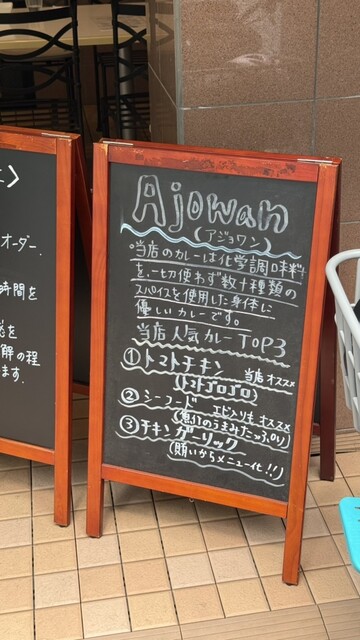 く
オーダー
時間を
を
解の程
ます。
Ajowan
(アジョワン)
°当店のカレーは化学調味料
を、一切使わず数十種類の
スパイスを使用した身体に
優しいカレーです。
当店人気カレーTOP3
①トマトチキン 当店オススメ
(トマトゴロゴロ)
②シーフード エビ入りもオススメ
(魚介のうまみたっぷり)
③チキンガーリック
(賄いからメニュー化!!)